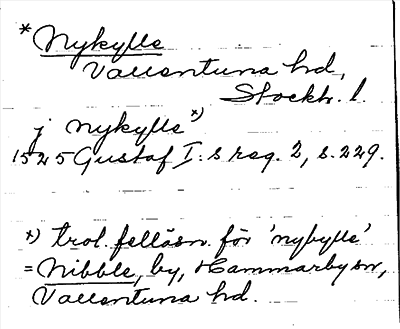 * Nykylle
Vallentuna hd,
Stockh. l.
j nykylle *)
1525 Gustaf I:s reg. 2, s. 229.
*) trol. felläsn. för 'nybylle'
= Nibble, by, Hammarby sn,
Vallentuna hd.